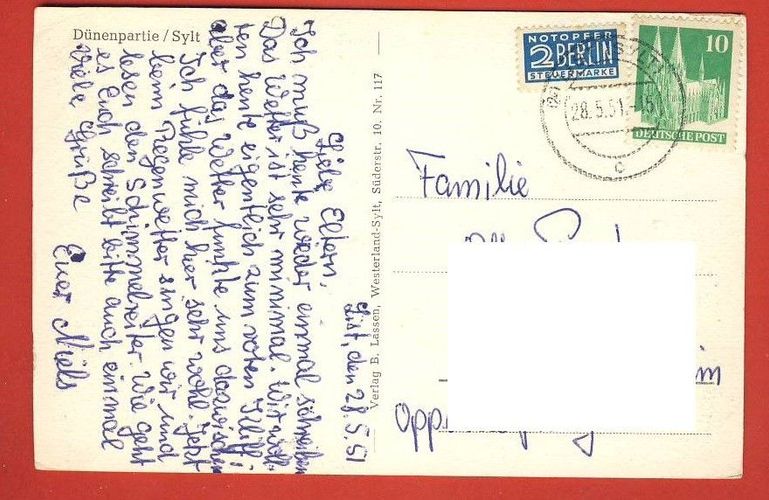 Dünenpartie / Sylt
List, den 28.5.51
Liebe Eltern,
Ich muß heute wieder einmal schreiben
Das Wetter ist sehr minimal. Wir woll-
ten heute eigentlich zum roten Kliff
aber das Wetter funkte uns dazwischen
Ich fühle mich hier sehr wohl. Jetzt
beim Regenwetter singen wir und
lesen den Schimmelreiter. Wie geht
es Euch schreibt bitte auch einmal
Viele Grüße
Euer Niels
Verlag B. Lassen, Westerland-Sylt, Süderstr. 10. Nr. 117
NOTOPFER
2 BERLIN
STEUERMARKE
10
DEUTSCHE POST
28.5.51
c
Familie